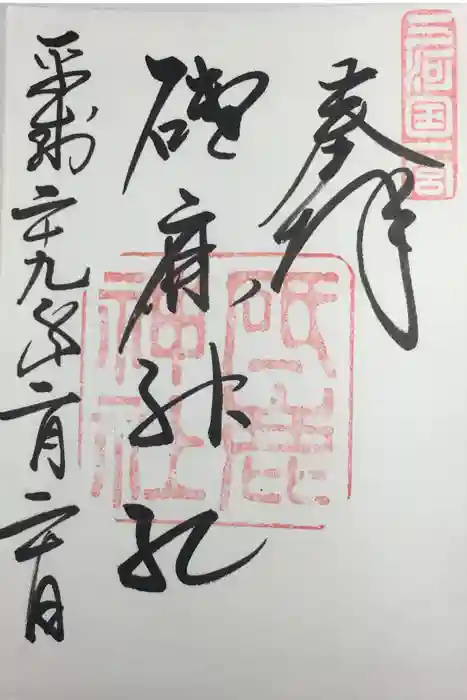 三河国一宮
奉拝
砥鹿神社
砥鹿
神社
平成二十九年二月二十日